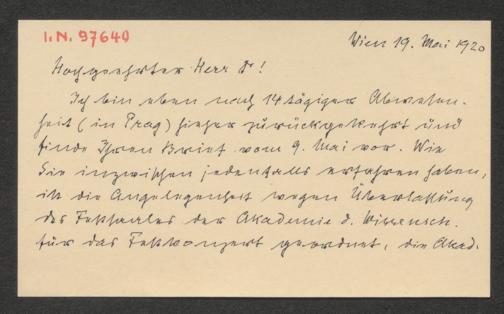 I.N. 97640
Wien 19. Mai 1920
Hochgeehrter Herr Dr!
Ich bin eben nach 14tägiger Abwesen-
heit (in Prag) hieher zurückgekehrt und
finde Ihren Brief vom 9. Mai vor. Wie
Sie inzwischen jedenfalls erfahren haben,
ist die Angelegenheit wegen Überlassung
des Festsaales der Akademie d. Wissensch.
für das Festkonzert geordnet, die Akad.